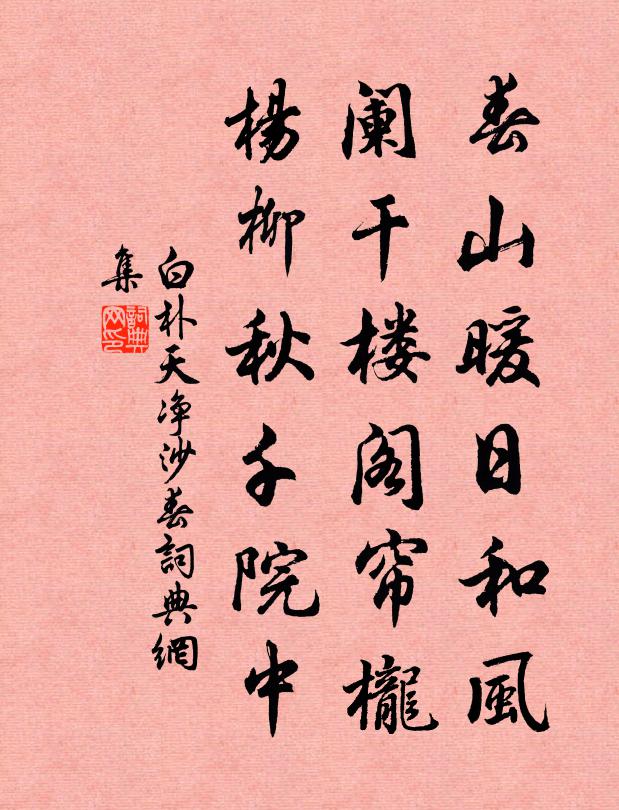 春山暖日和風
阑干楼阁帘櫳
楊柳秋千院中
白朴天净沙春詞典網
集
詞典
网印